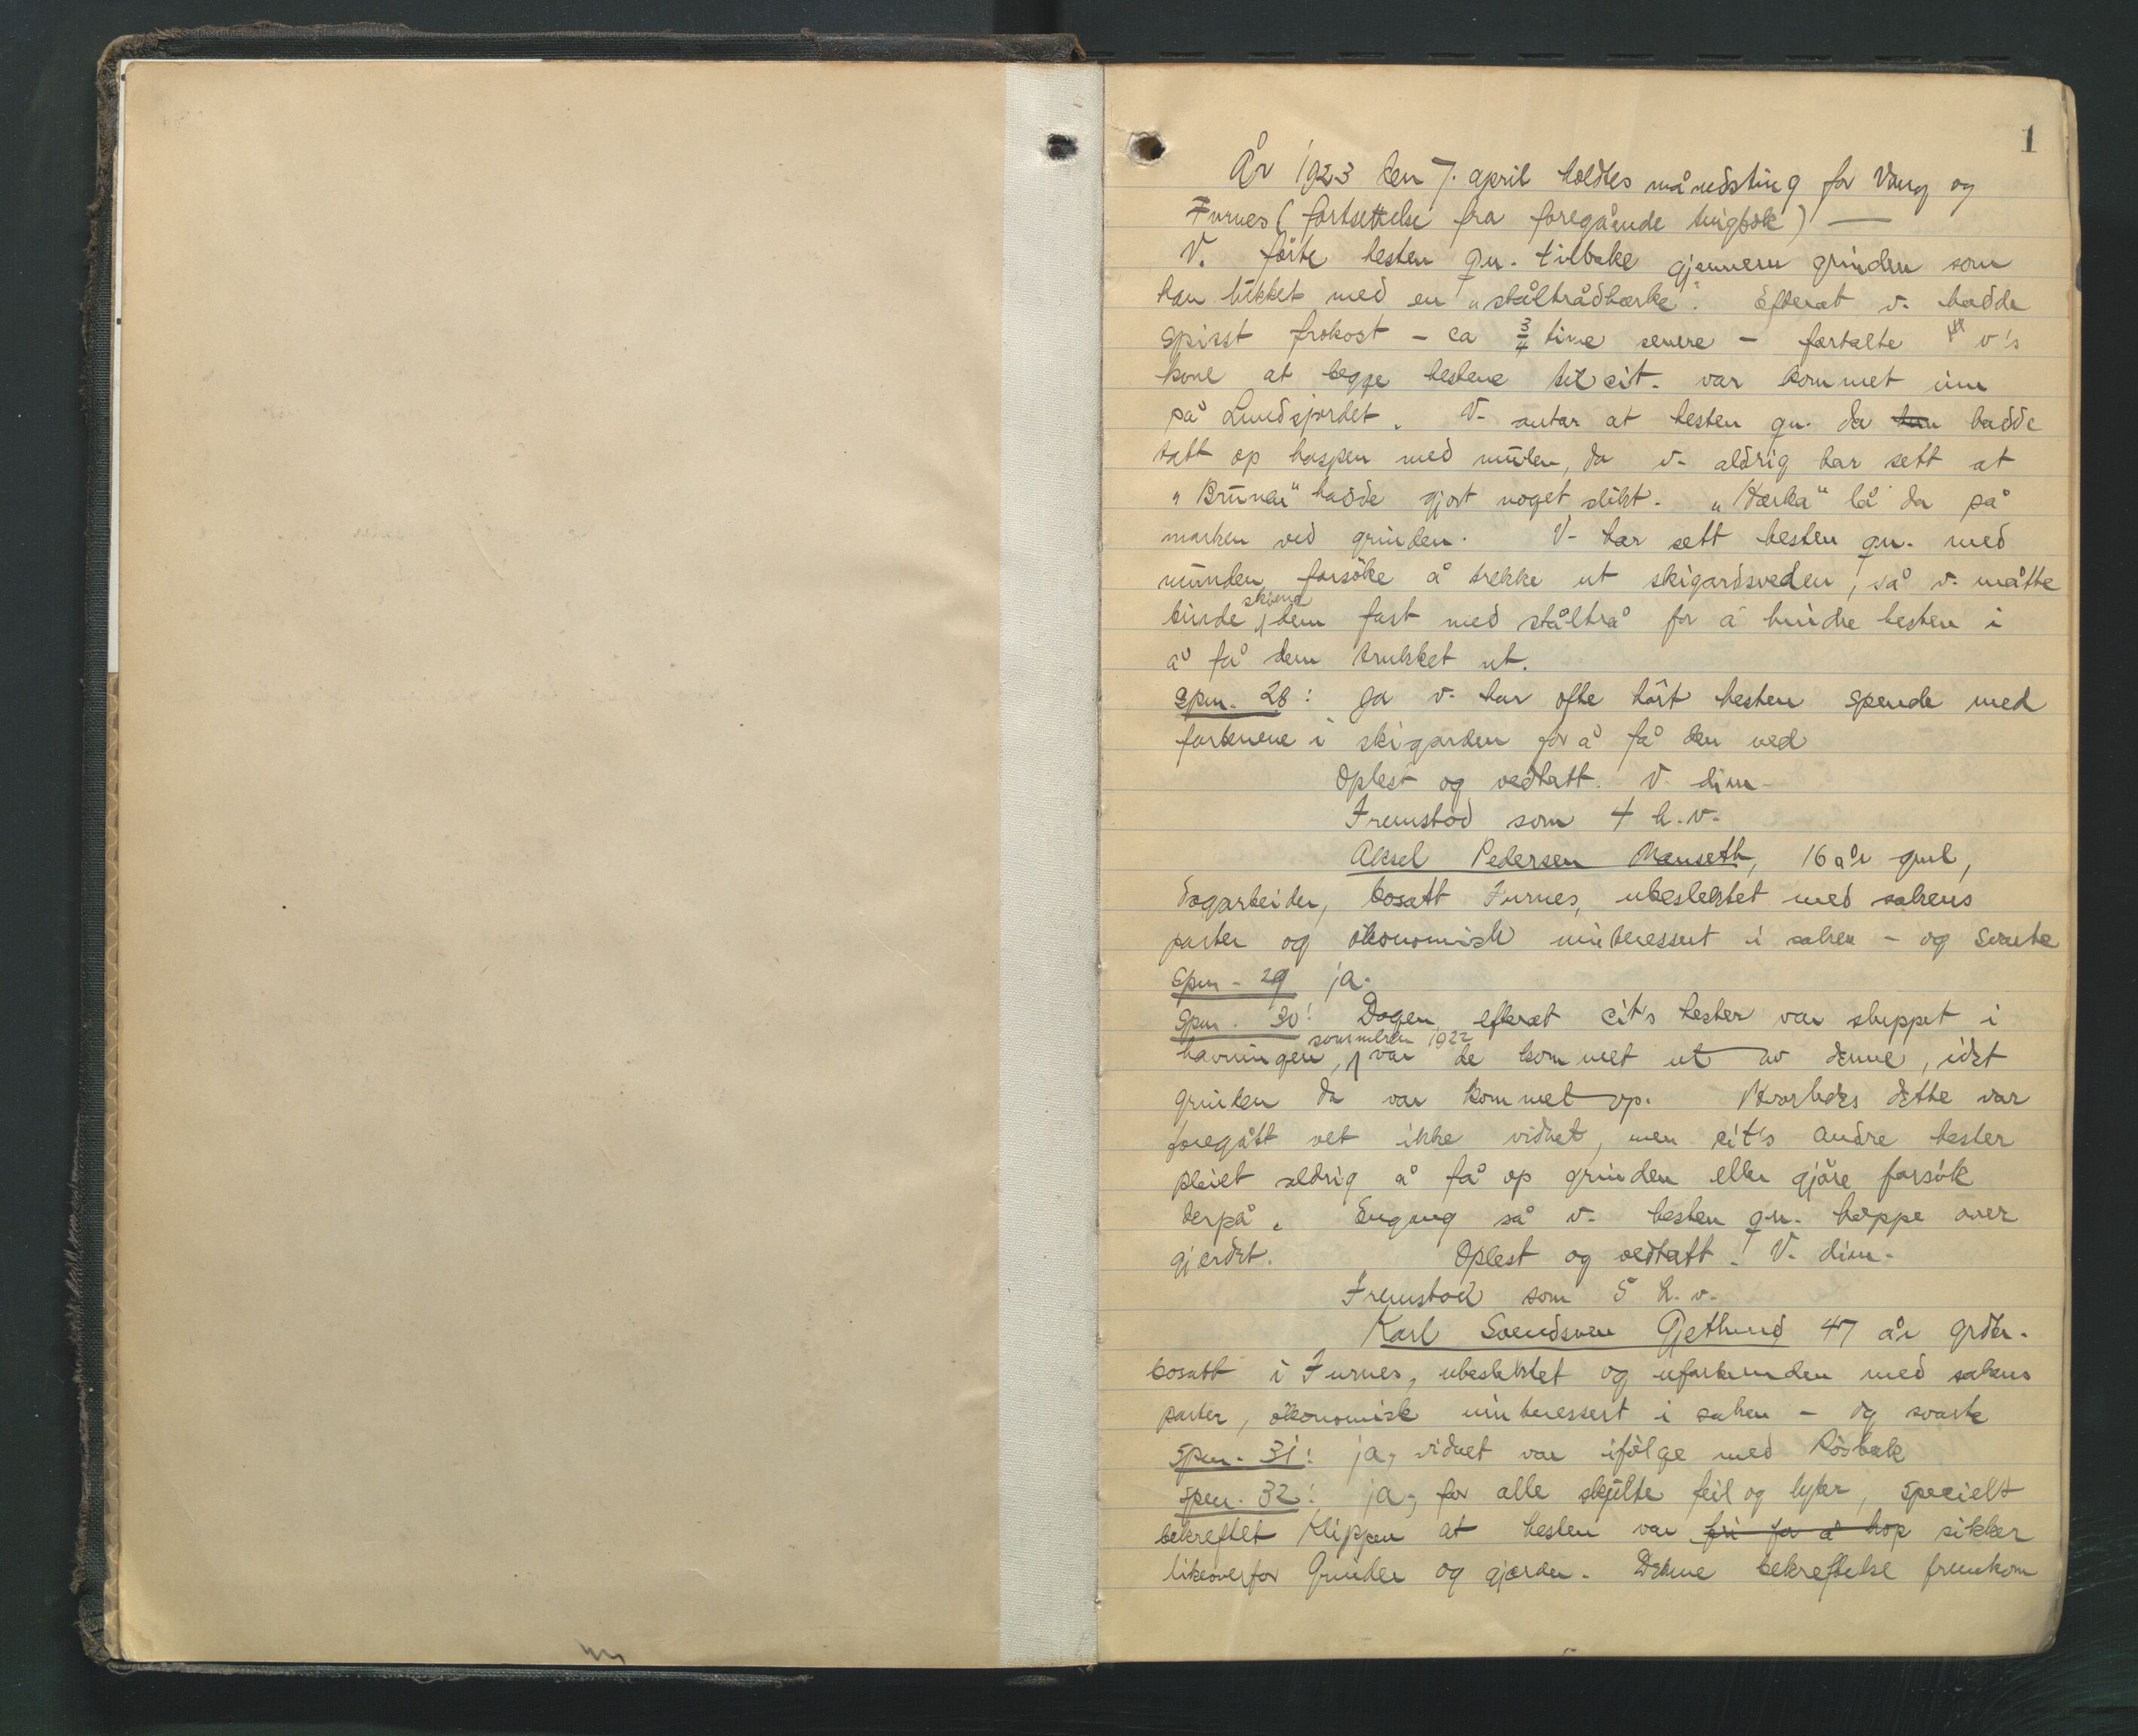 1
År 1923 den 7. april holdtes månedsting for Vang og
Furnes (fortsettelse fra foregående tingbok) —
V. förte hesten qu. tilbake gjennem grinden som
han lukket med en "ståltrådhærke". Efterat v. hadde
spisst frokost - ca 3/4 time senere - fortalte v's
kone at begge hestene til cit. var kommet inn
på Lundsjordet. V. antar at hesten qu. da hadde
tatt op haspen med mulen, da v. aldrig har sett at
"Brunen" hadde gjort noget slikt. "Hærka" lå da på
marken ved grinden. V. har sett hesten qu. med
munden forsöke å trekke ut skigardsveden, så v. måtte
binde skiene dem fast med ståltrå for å hindre hesten i
å få dem trukket ut.
Spm. 28: Ja v. har ofte hört hesten spende med
forbenene i skigarden for å få den ned
Oplest og vedtatt. V. dim.
Fremstod som 4 h.v.
Aksel Pedersen Manseth, 16 år gml,
dagarbeider, bosatt Furnes, ubeslektet med sakens
parter og ökonomisk uinteressert i saken - og svarte
Spm. 29 ja.
Spm. 30: Dagen efterat cit's hester var sluppet i
havningen, sommeren 1922 var de kommet ut av denne, idet
grinden da var kommet op. Hvorledes dette var
foregått vet ikke vidnet, men cit's andre hester
pleiet aldrig å få op grinden eller gjöre forsök
derpå. Engang så v. hesten qu. hoppe over
gjerdet. Oplest og vedtatt. V. dim.
Fremstod som 5 h.v.
Karl Svendsen Gjetlund 47 år grdbr.
bosatt i Furnes, ubeslektet og uforbunden med sakens
parter, ökonomisk uinteressert i saken - og svarte
Spm. 31: ja, vidnet var ifölge med Rösbak
Spm. 32: ja, for alle skjulte feil og lyter, specielt
bekreftet Klippen at hesten var fri for å hop sikker
likeoverfor Grinder og gjerder. Denne bekreftelse fremkom